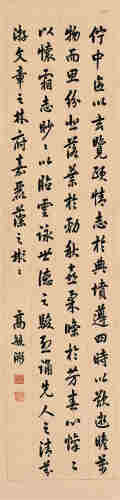 佇中區以玄覽頤情志於典墳遵四時以歎逝瞻萬
物而思紛悲落葉於勁秋喜柔條於芳春心懍〻
以懷霜志眇〻以臨雲詠世德之駿烈誦先人之清芬
游文章之林府嘉麗藻之彬〻
高毓浵